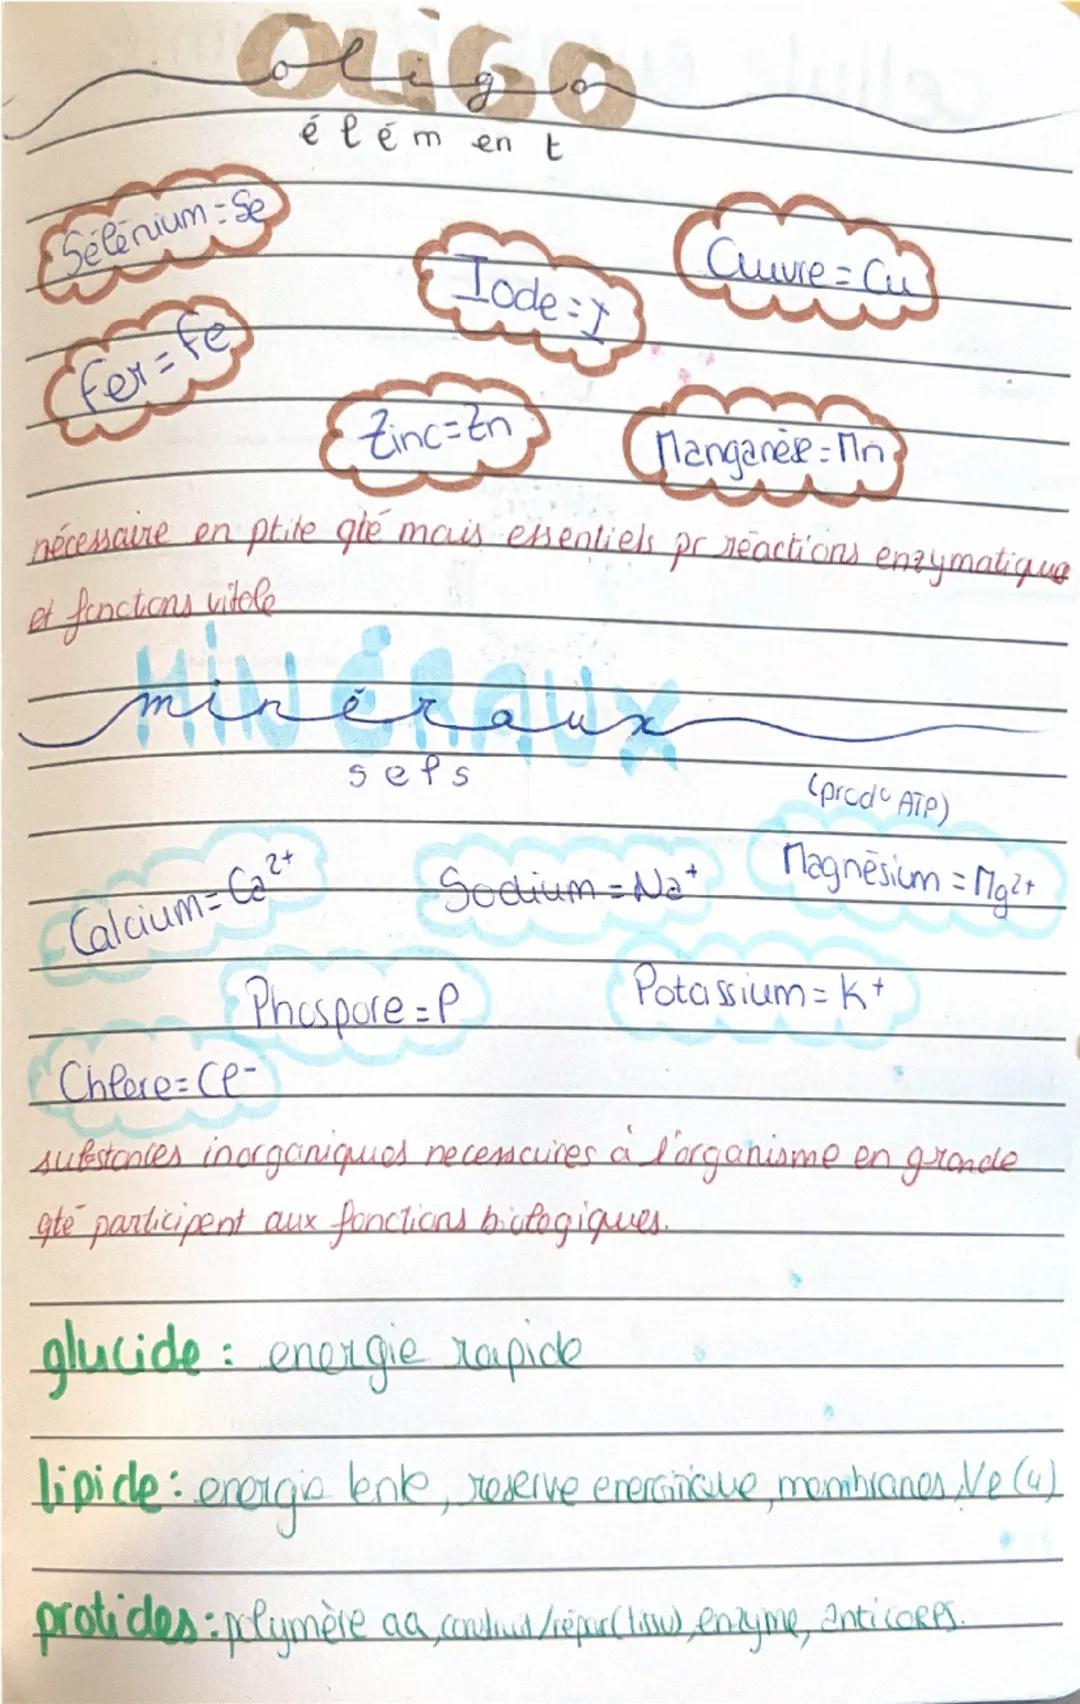 OLiGO
oligo
élément
Sélénium = Se
Iode = I
Cuivre = Cu
Fer = Fe
Zinc = Zn
Manganèse = Mn
nécessaire en ptite qté mais essentiels pr réactions enzymatique
et fonctions vitale
MiNÉRAUX
minéraux
sels
(prod° ATP)
Calcium = Ca²⁺
Sodium = Na⁺
Magnésium = Mg²⁺
Phospore = P
Potassium = K⁺
Chlore = Cl⁻
substances inorganiques necessaires à l'organisme en grande
qté participent aux fonctions biologiques.
glucide : energie rapide
lipide : energie lente, reserve energitique, membranes,
protides : polymère aa, construit/répar(tissu), enzyme, anticorps.